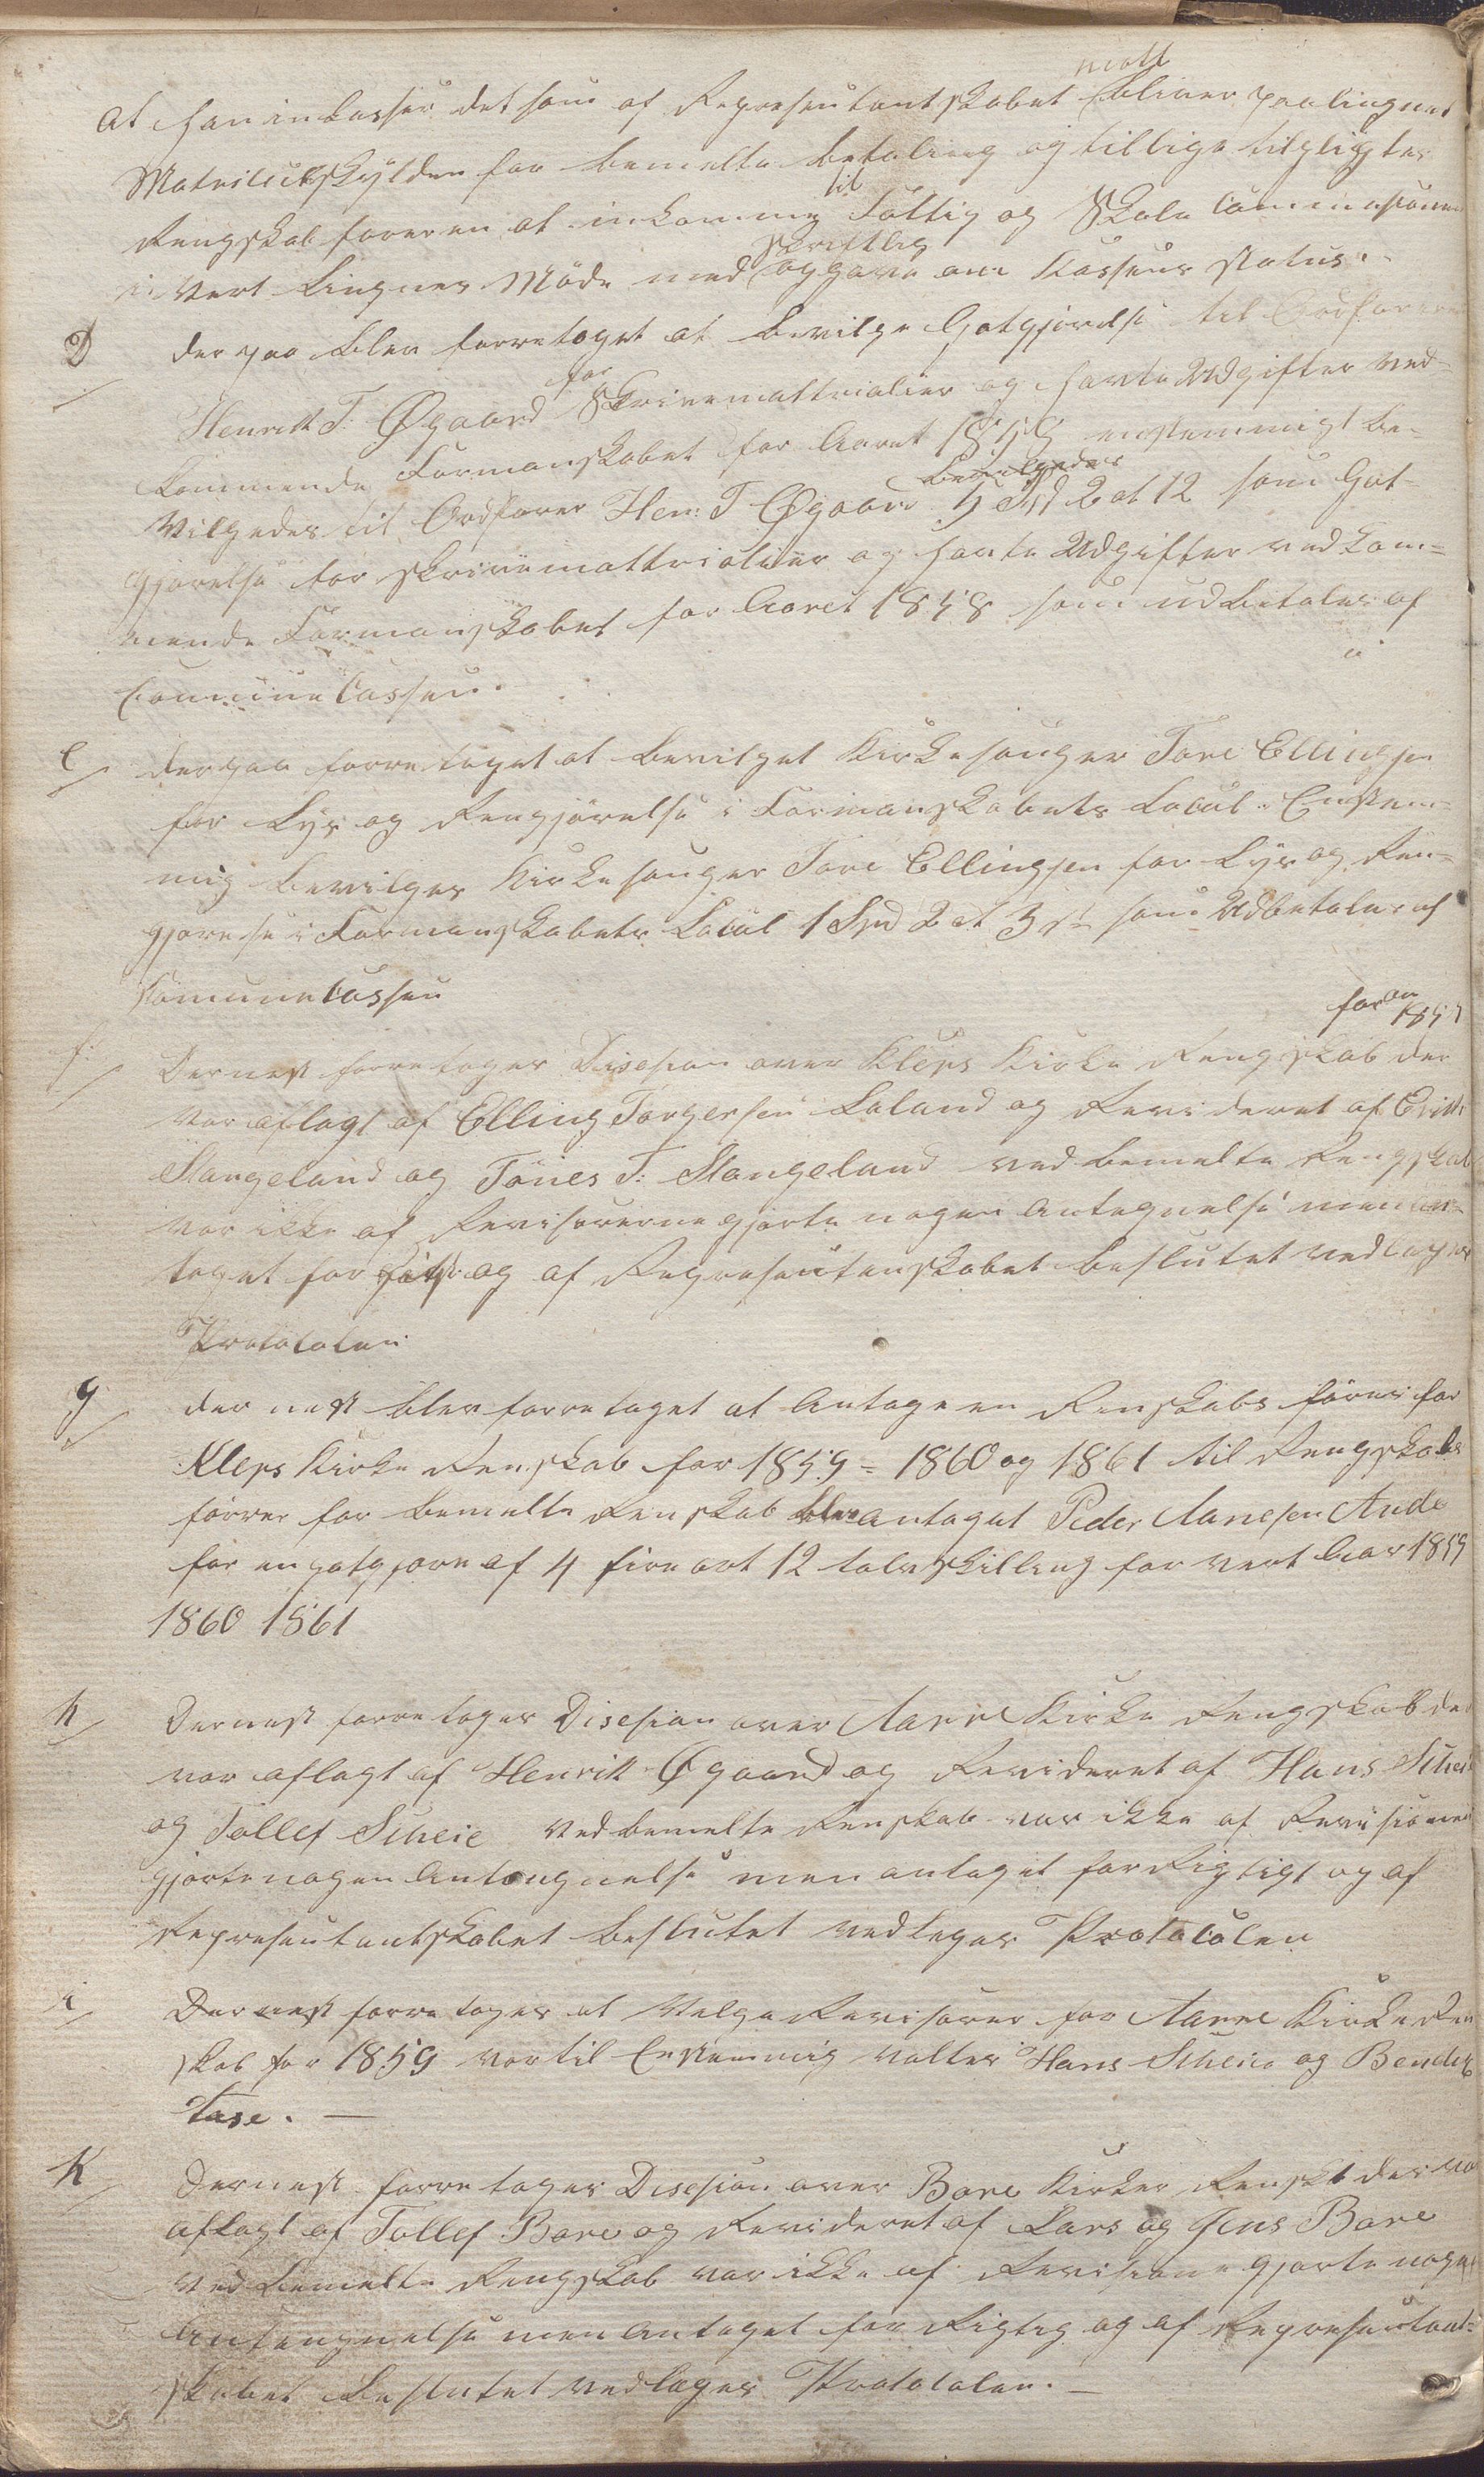 matt
at han incasser det som af Representantskabet bliver paalingnet
Matriculskylden for bemelte betaling og tillige tilpligtes
Rengskabsføreren at inkomme til Fattig og Skole Commissionen
i vert Lingnes Møde med skriftlig opgave om Kassens status.
D der paa blev forretaget at bevilge Gotgjørelse til Ordfører
Henrik T: Øgaard for Skrivemattrialier og havte Udgifter ved-
kommende Formanskabet for Aaret 1858 enstemmigt be-
vilgedes til Ordfører Hen: T Øgaard 5 Spd 2 ort 12 som Got-
gjørelse for skrivemattrialier og havte Udgifter vedkom-
mende Formanskabet for Aaret 1858 som udbetales af
Communecassen.
e derpaa forretaget at bevilget Kirkesanger Tore Ellingsen
for Lys og Rengjørelse i Formanskabets Local. Enstem-
mig bevilges Kirkesanger Tore Ellingsen for Lys og Ren-
gjørelse i Formanskabets Local 1 Spd 2 ort 3 s som Udbetales af
Komunecassen
for 1857
f: Dernest forretages Disesion over Kleps Kirke Rengskab der
var aflagt af Elling Torgersen Laland og Revideret af Erik
Stangeland og Tønes T: Stangeland ved bemelte Rengskab
var ikke af Revisorerne gjorte nogen Antegnelse men an-
taget for og af Representenskabet besluttet vedlages
Protocolen
g der nest blev forretaget at Antage en Renskabs fører for
Kleps Kirke Renskab for 1859 = 1860 og 1861 til Rengskabs
fører for bemelte Renskab blev antaget Peder Aanesen Anda
for en gotgjøre af 4 fire ort 12 tolv skilling for vert Aar 1859
1860 1861
h Dernest forretages Disesion over Aarre Kirke Rengskab der
var aflagt af Henrik Øgaard og Revideret af Hans Scheie
og Tollef Scheie Ved bemelte Renskab var ikke af Revisionen
gjorte nogen Antengnelse men antaget for Rigtigt og af
Representantskabet besluttet vedleges Protocolen
i Dernest forretages at Velge Revisorer for Aarre Kirke Ren
skab for 1859 vortil Enstemmig valtes Hans Scheie og Bendik
Tase. —
K Dernest forretages Disesion over Bore Kirkes Renskb der var
aflagt af Tollef Bore og Revideret af Lars og Jens Bore
Ved bemelte Rengskab var ikke af Revisione gjorte nogen
Antengnelse men Antaget for Rigtig og af Representant-
skabet Besluttet vedlages Protocolen. —